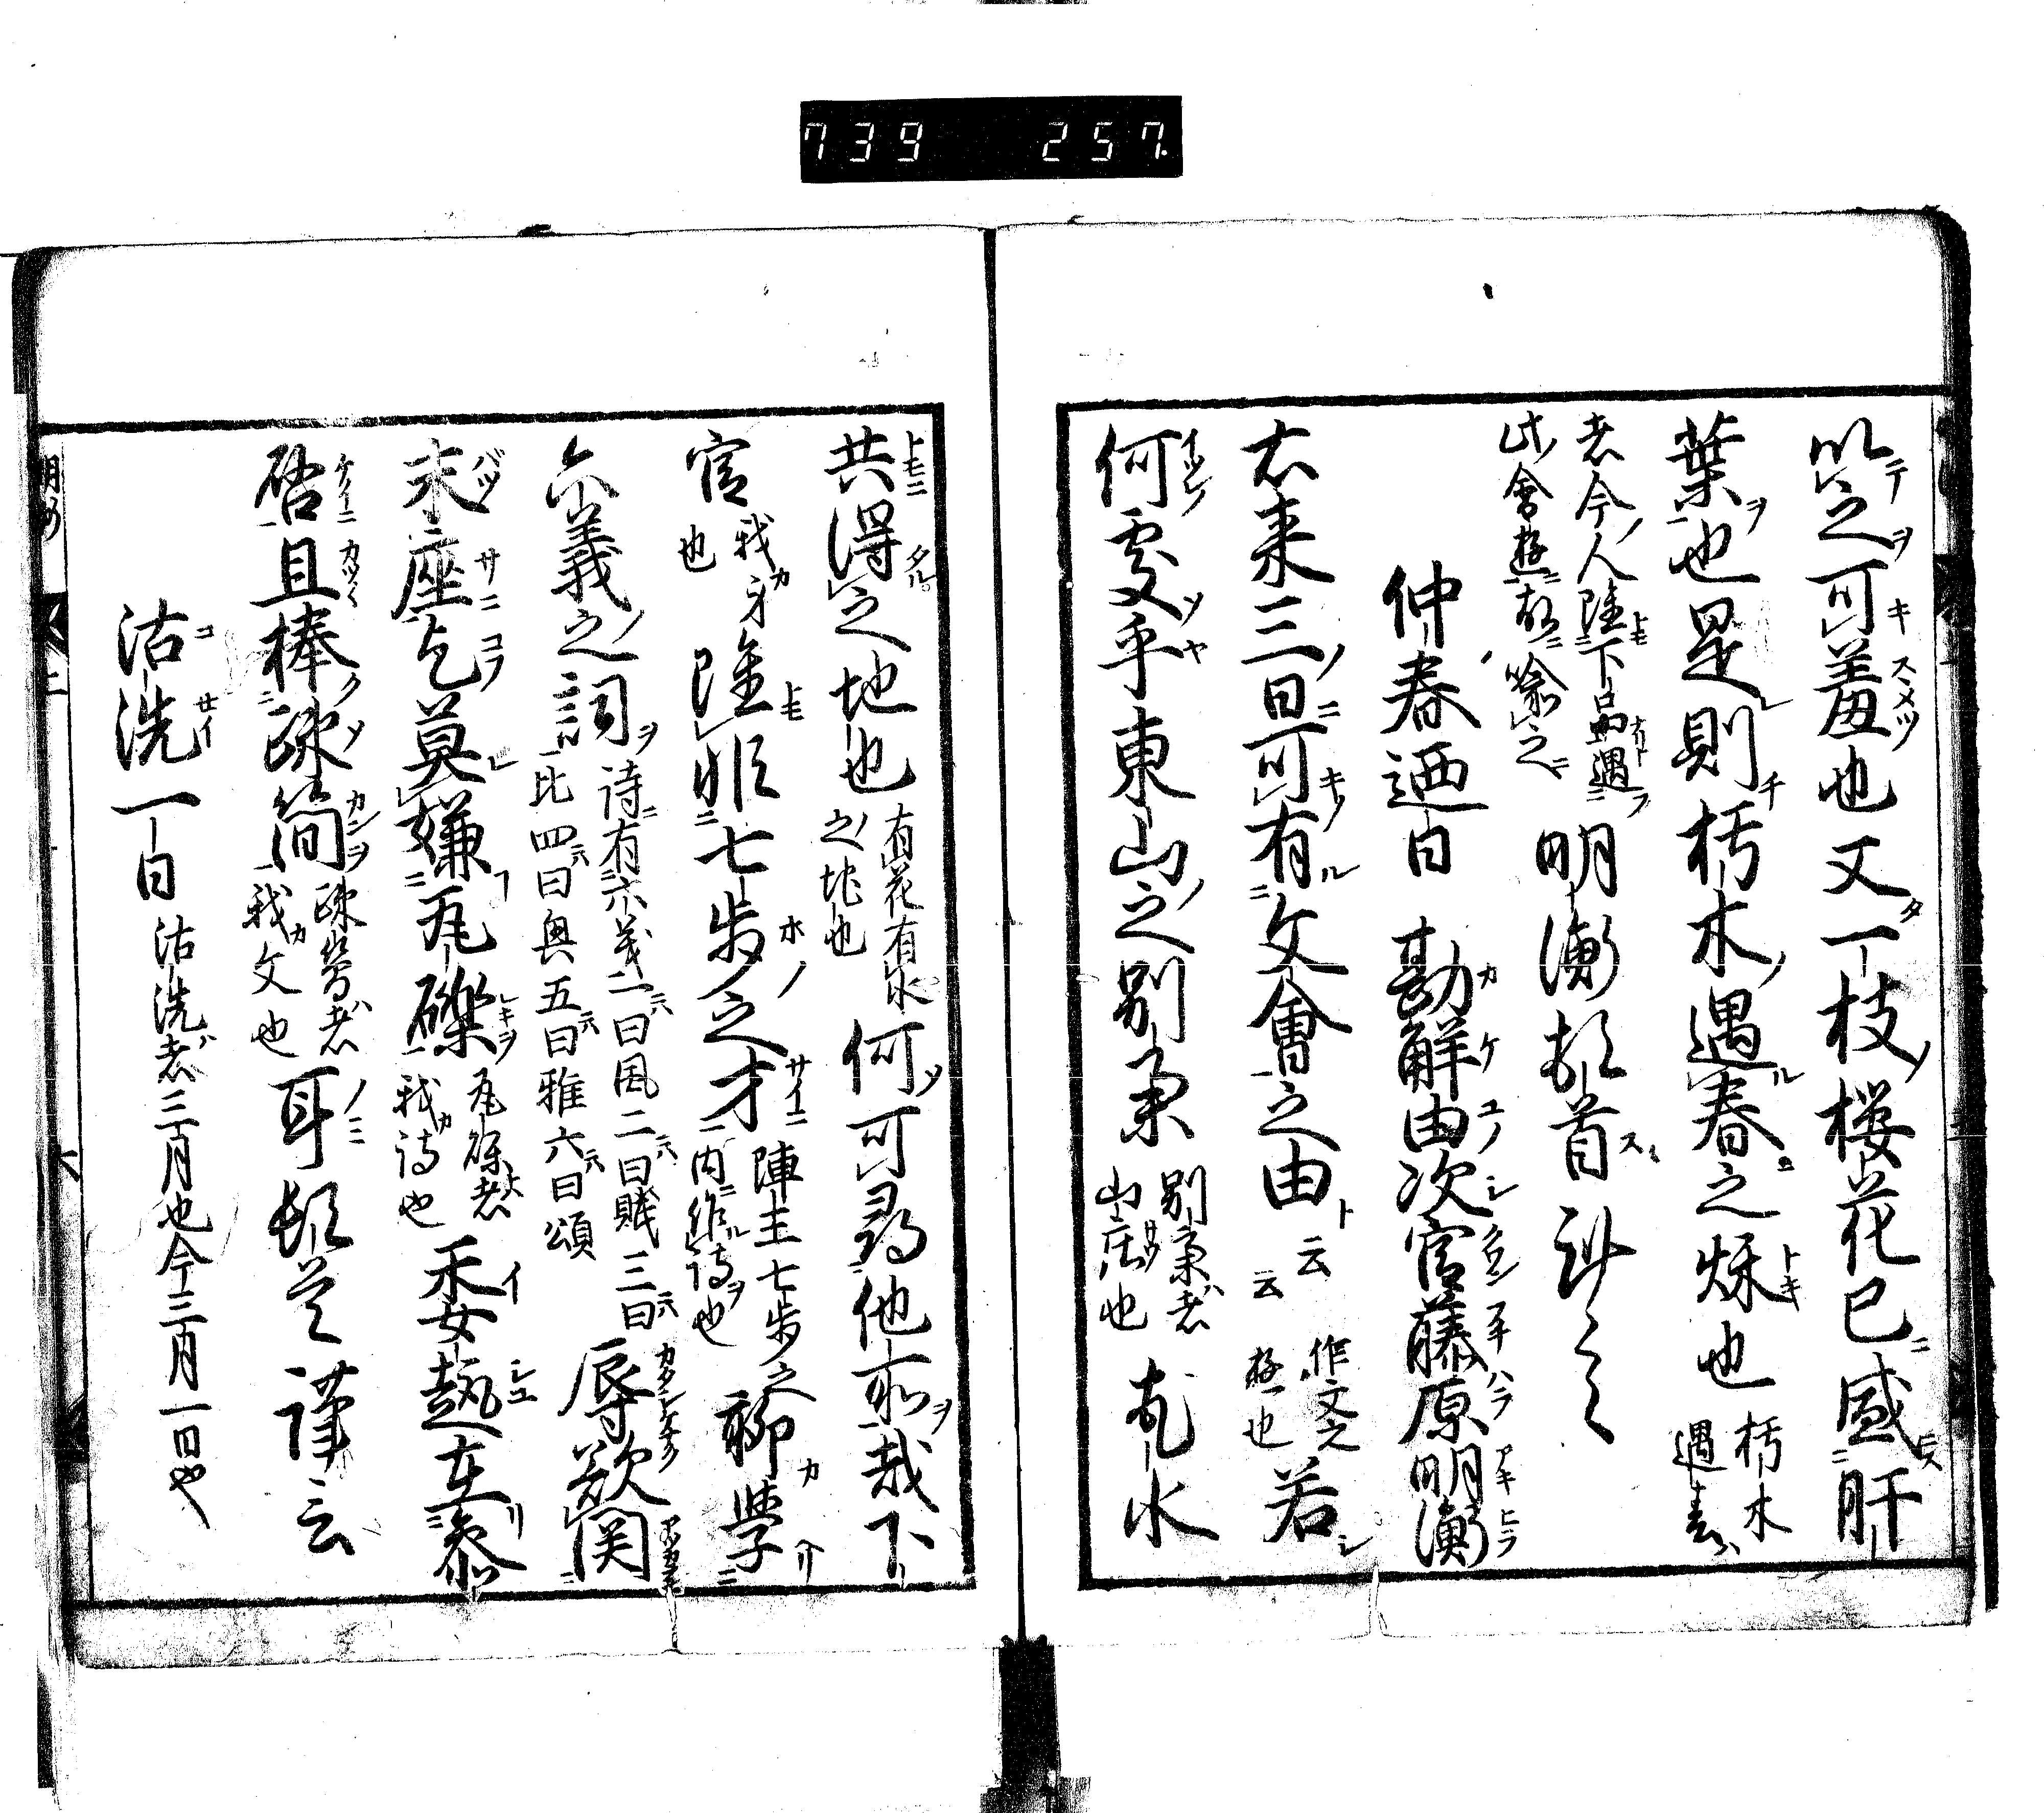 739 257
以之可羞也又一枝桜花已盛肝
葉也是則朽木遇春之秌也 朽木遇春
者今人陸下品遇
此會遊故喩之 明衡頓首
仲春廼日 勘解由次官藤原明衡
右来三日可有文會之由云云 作文之遊也 若
何處乎東山之別業 別業者山庄也 花水
共得之地也 有花有水之地也 何可尋他所哉下
官 我也 雖非七歩之才 陳主七歩之内作詩也 聊學
六義之詞 詩有六義一曰風二曰賦三曰比四曰興五曰雅六曰頌 辱欲関
末座乞莫嫌瓦礫 瓦礫者我詩也 委趣在泰
啓且捧疎簡 疎簡者我文也 耳頓首謹言
沽洗一日 沽洗者三月也今三月一日也